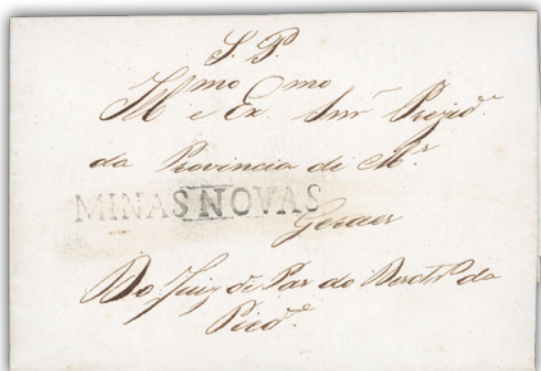 S. P.
Illmo e Exmo Snr Prezide
da Provincia de Ms
MINAS NOVAS
Geraes
Do Juiz de Paz do Destrto da
Piede